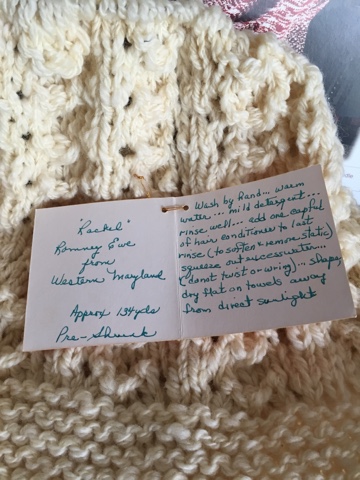 "Rachel"
Romney Ewe
from
Western Maryland
Approx 134yds
Pre-Shrunk
Wash by Hand... warm
water... mild detergent...
rinse well... add one capful
of hair conditioner to last
rinse (to soften & remove static)
squeeze out excess water...
(do not twist or wring)... shape,
dry flat on towels away
from direct sunlight